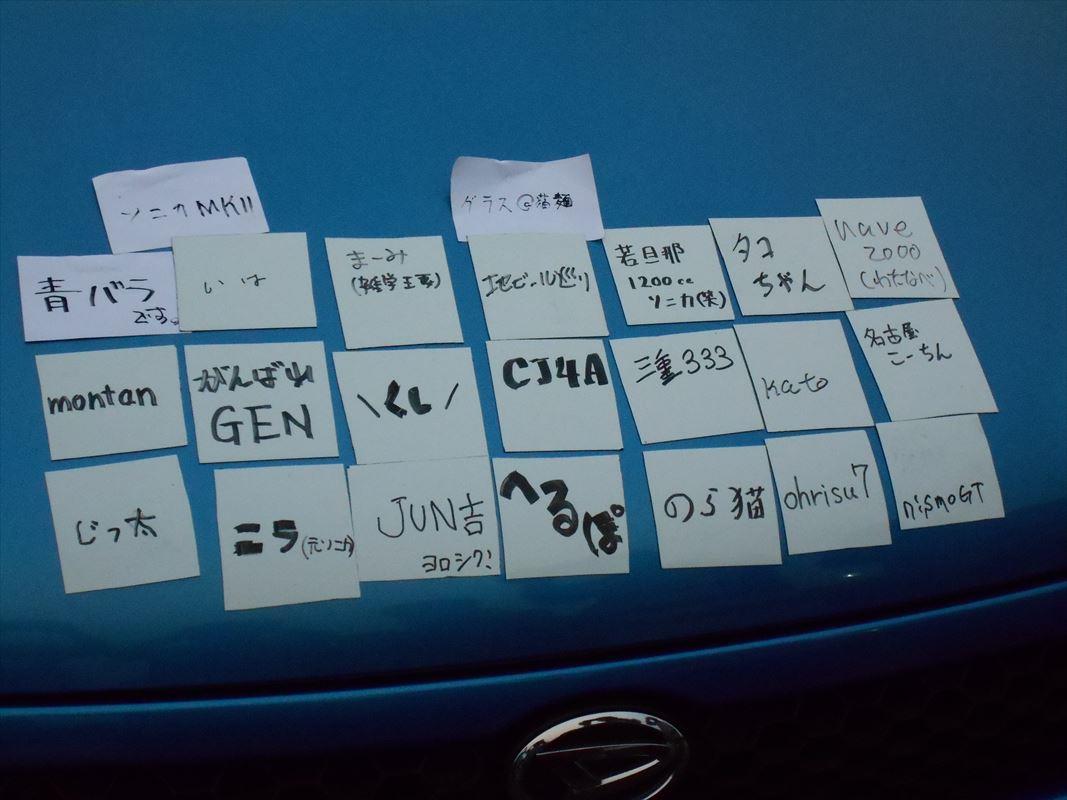 ソニカMKII
グラス@猫麺
青バラ
です。
いは
まーみ
(雑学王夢)
地ビール巡り
若旦那
1200cc
ソニカ(笑)
タコ
ちゃん
nave
2000
(わたなべ)
montan
がんばル
GEN
\くし/
CJ4A
三重333
kato
名古屋
こーちん
じっ太
ニラ(元ソニカ)
JUN吉
ヨロシク!
へるぽ
のら猫
ohrisu7
nismoGT